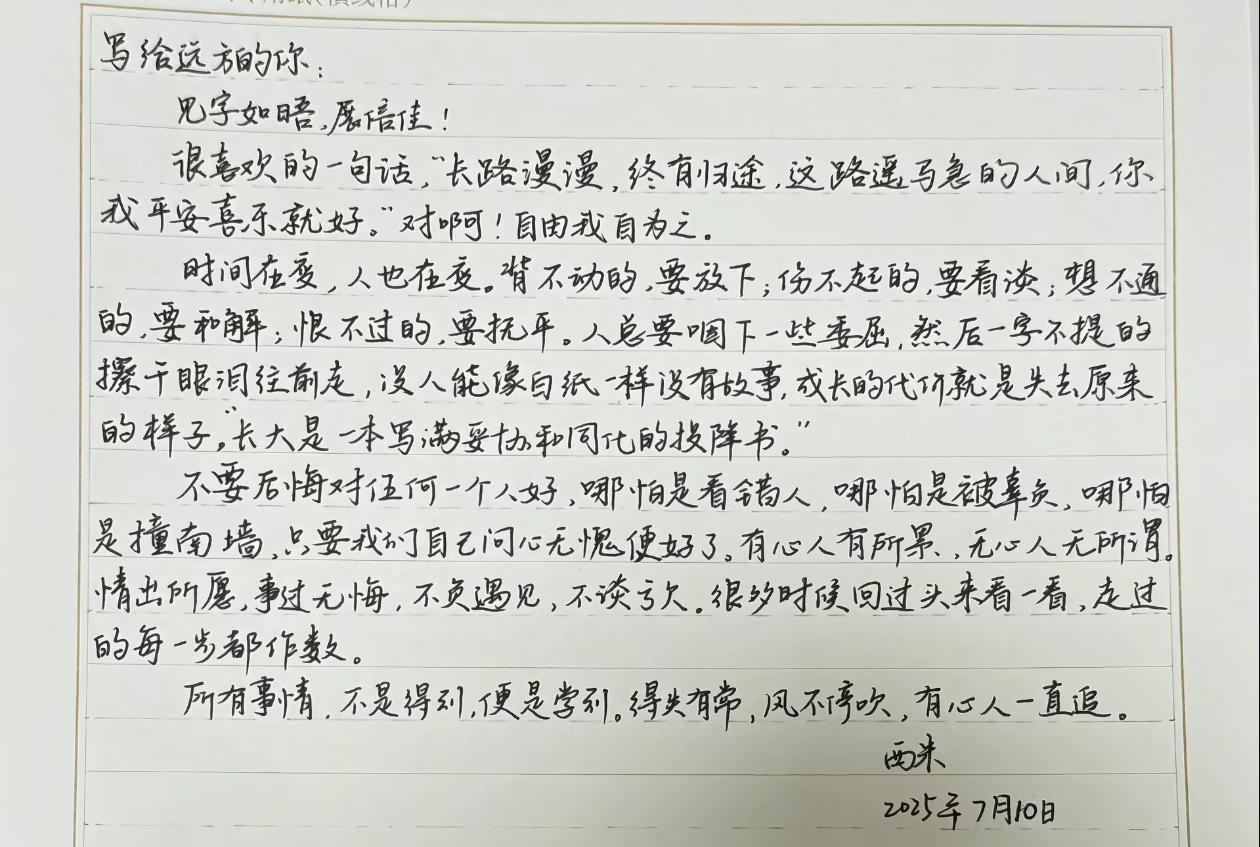 写给远方的你：
见字如晤，展信佳！
很喜欢的一句话，“长路漫漫，终有归途，这路遥马急的人间，你
我平安喜乐就好。”对啊！自由我自为之。
时间在变，人也在变。背不动的，要放下；伤不起的，要看淡；想不通
的，要和解；恨不过的，要抚平。人总要咽下一些委屈，然后一字不提的
擦干眼泪往前走，没人能像白纸一样没有故事，成长的代价就是失去原来
的样子，“长大是一本写满妥协和同化的投降书。”
不要后悔对任何一个人好，哪怕是看错人，哪怕是被辜负，哪怕
是撞南墙，只要我们自己问心无愧便好了。有心人有所累，无心人无所谓。
情出所愿，事过无悔，不负遇见，不谈亏欠。很多时候回过头来看一看，走过
的每一步都作数。
所有事情，不是得到，便是学到。得失有常，风不停吹，有心人一直追。
西米
2025年7月10日